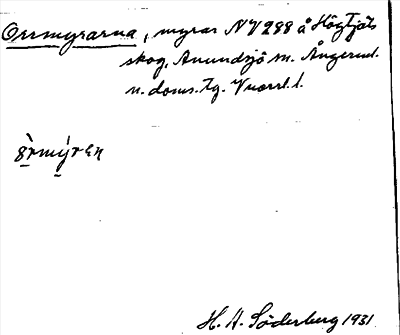 Orrmyrarna, myrar NV 288 å Högtjäls
skog, Anundsjö sn. Ångerml.
n. doms. Tg. Vnorrl. l.
òrmýrɛn
H. A. Söderberg 1931